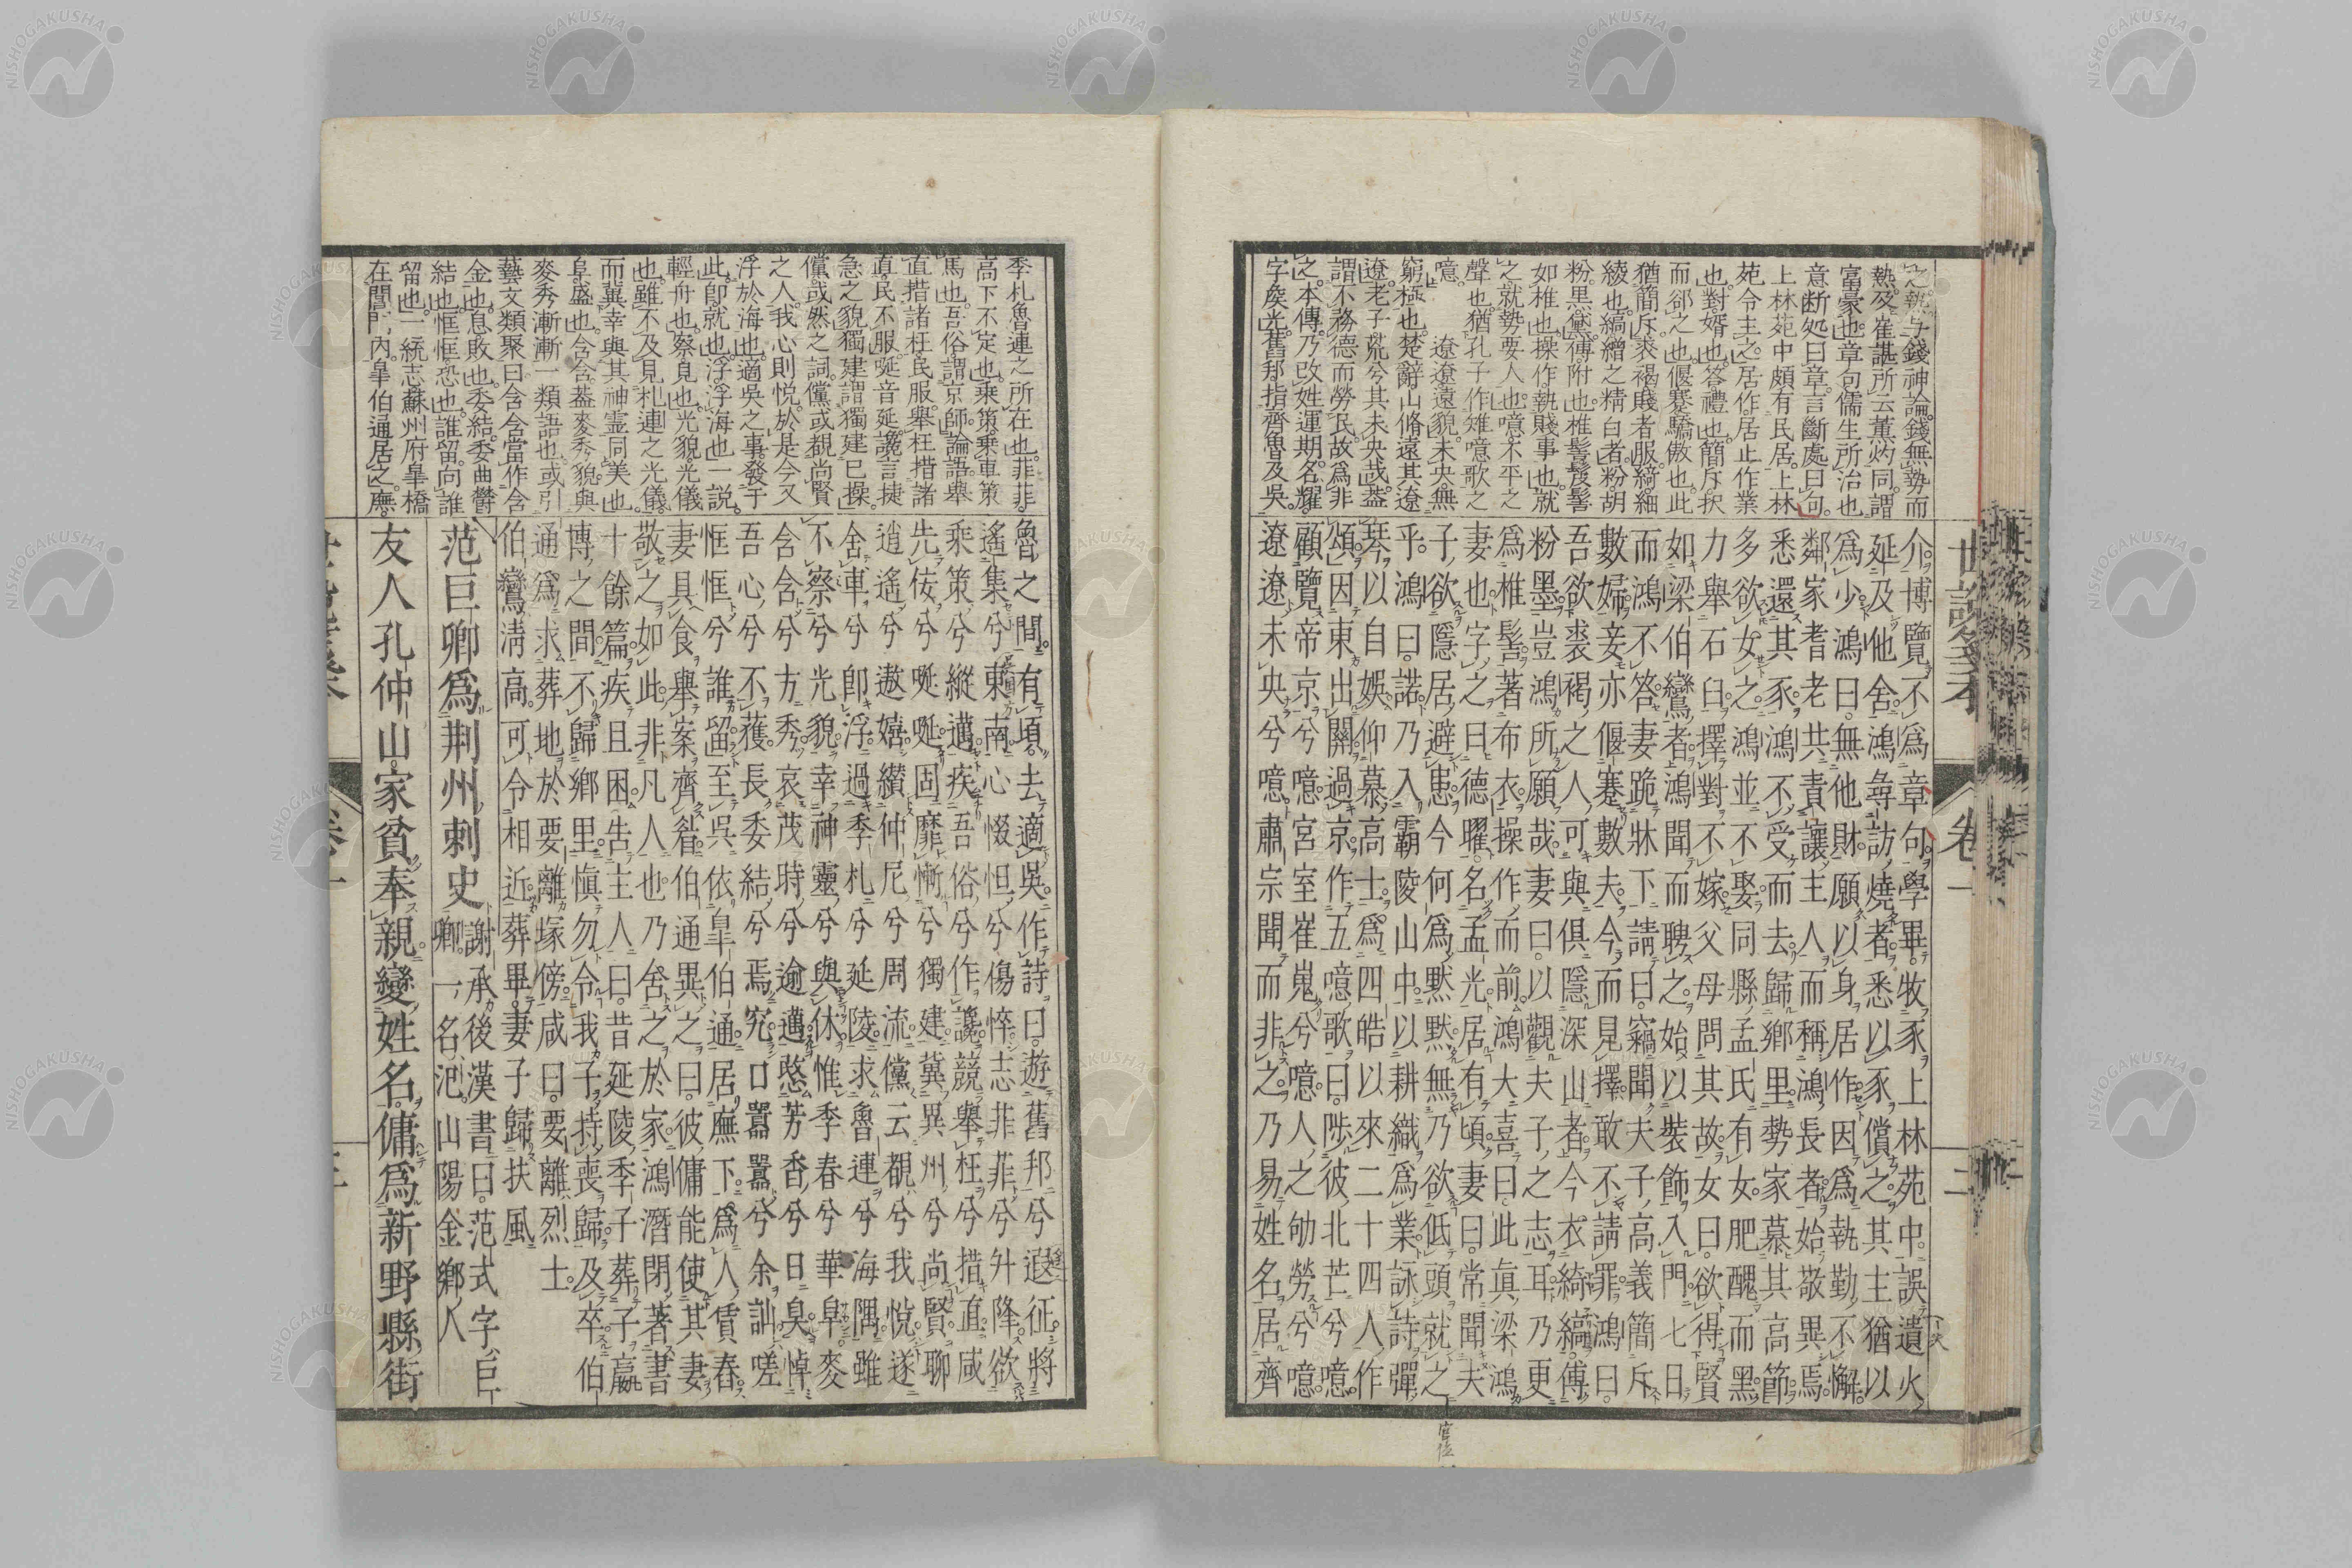 之熱与錢神論錢無勢而
熱及崔諶所云薫灼同謂
富豪也章句儒生所治也
意断処曰章言斷處曰句
上林苑中頗有民居上林
苑令主之居作居止作業
也對婿也答禮也簡斥択
而郤之也偃蹇驕傲也此
猶簡斥裘褐賤者服綺細
綾也縞繒之精白者粉胡
粉黒黛傅附也椎髻髲髻
如椎也操作執賤事也就
之就勢要人也噫不平之
聲也猶孔子作雉噫歌之
噫遼遼遠貌未央無
窮極也楚辭山脩遠其遼
遼老子荒兮其未央哉蓋
謂不務德而勞民故為非
之本傳乃改姓運期名耀
字矦光舊邦指齊魯及吳
介博覽不爲章句學畢牧豕上林苑中誤遺火
延及他舍鴻尋訪燒者悉以豕償之其主猶以
爲少鴻曰無他財願以身居作因爲執勤不懈
鄰家耆老共責讓主人而稱鴻長者始敬異焉
悉還其豕鴻不受而去歸鄉里勢家慕其高節
多欲女之鴻並不娶同縣孟氏有女肥醜而黑
力舉石臼擇對不嫁父母問其故女曰欲得賢
如梁伯鸞者鴻聞而聘之始以裝飾入門七日
而鴻不答妻跪牀下請曰竊聞夫子高義簡斥
數婦妾亦偃蹇數夫今而見擇敢不請罪鴻曰
吾欲裘褐之人可與俱隱深山者今衣綺縞傅
粉墨豈鴻所願哉妻曰以觀夫子之志耳乃更
爲椎髻著布衣操作而前鴻大喜曰此眞梁鴻
妻也字之曰德曜名孟光居有頃妻曰常聞夫
子欲隱居避患今何爲默默無乃欲低頭就之
乎鴻曰諾乃入霸陵山中以耕織爲業詠詩彈
琴以自娛仰慕高士爲四皓以來二十四人作
頌因東出關過京作五噫歌曰陟彼北芒兮噫
顧覽帝京兮噫宮室崔嵬兮噫人之劬勞兮噫
遼遼未央兮噫肅宗聞而非之乃易姓名居齊
世說箋本
卷一
三
季札魯連之所在也菲菲
高下不定也乘策乘車策
馬也吾俗謂京師論語舉
直措諸枉民服舉枉措諸
直民不服唌音延讒言捷
急之貌獨建謂獨建已操
儻或然之詞儻或覩尚賢
之人我心則悅於是今又
浮於海也適吳之事發于
此卽就也浮浮海也一説
輕舟也察見也光貌光儀
也雖不及見札連之光儀
而冀幸與其神霊同美也
阜盛也含含蓋麥秀貌與
麥秀漸漸一類語也或引
藝文類聚曰含含當作含
金也息敗也委結委曲鬱
結也恇恇恐也誰留向誰
留也一統志蘇州府皐橋
在閶門内皐伯通居之廡
魯之間有頃去適吳作詩曰遊舊邦兮遐征將
遙集兮東南心惙怛兮傷悴志菲菲兮升降欲
乘策兮縱邁疾吾俗兮作讒競舉枉兮措直咸
先佞兮唌唌固靡慚兮獨建冀異州兮尚賢聊
逍遙兮遨嬉纘仲尼兮周流儻云覩兮我悅遂
舍車兮卽浮過季札兮延陵求魯連兮海隅雖
不察兮光貌幸神靈兮與休惟季春兮華阜麥
含含兮方秀哀茂時兮逾邁愍芳香兮日臭悼
吾心兮不獲長委結兮焉究口囂囂兮余訕嗟
恇恇兮誰留至吳依皐伯通居廡下爲人賃舂
妻具食舉案齊眉伯通異之曰彼傭能使其妻
敬之如此非凡人也乃舍之於家鴻潛閉著書
十餘篇疾且困告主人曰昔延陵季子葬子嬴
博之間不歸鄉里愼勿令我子持喪歸及卒伯
通爲求葬地於要離塚傍咸曰要離烈士
伯鸞淸高可令相近葬畢妻子歸扶風
范巨卿爲荆州刺史謝承後漢書曰范式字巨
卿一名汜山陽金鄉人
友人孔仲山家貧奉親變姓名傭爲新野縣街